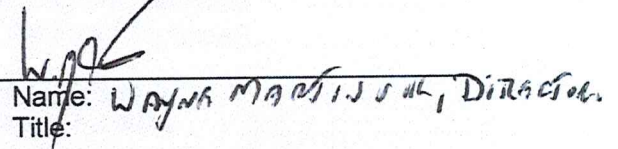 Name: WAYNE MARTINSON, DIRECTOR.
Title: